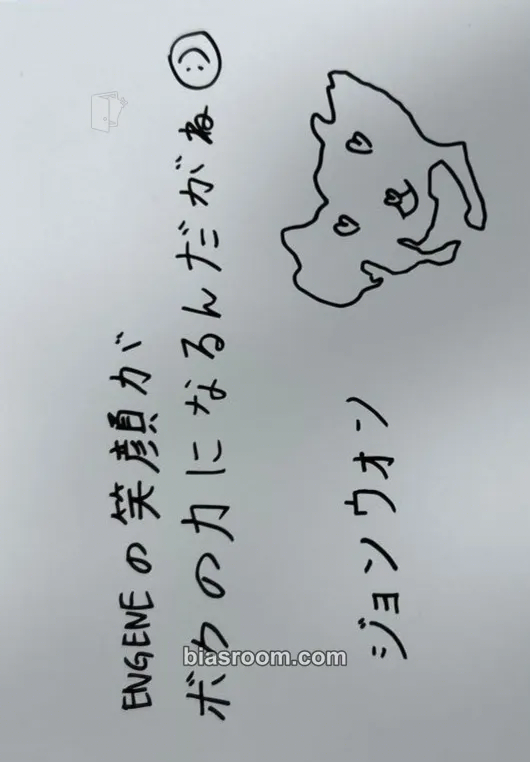 ENGENEの笑顔が
ボクの力になるんだがね :)
ジョンウォン
biasroom.com